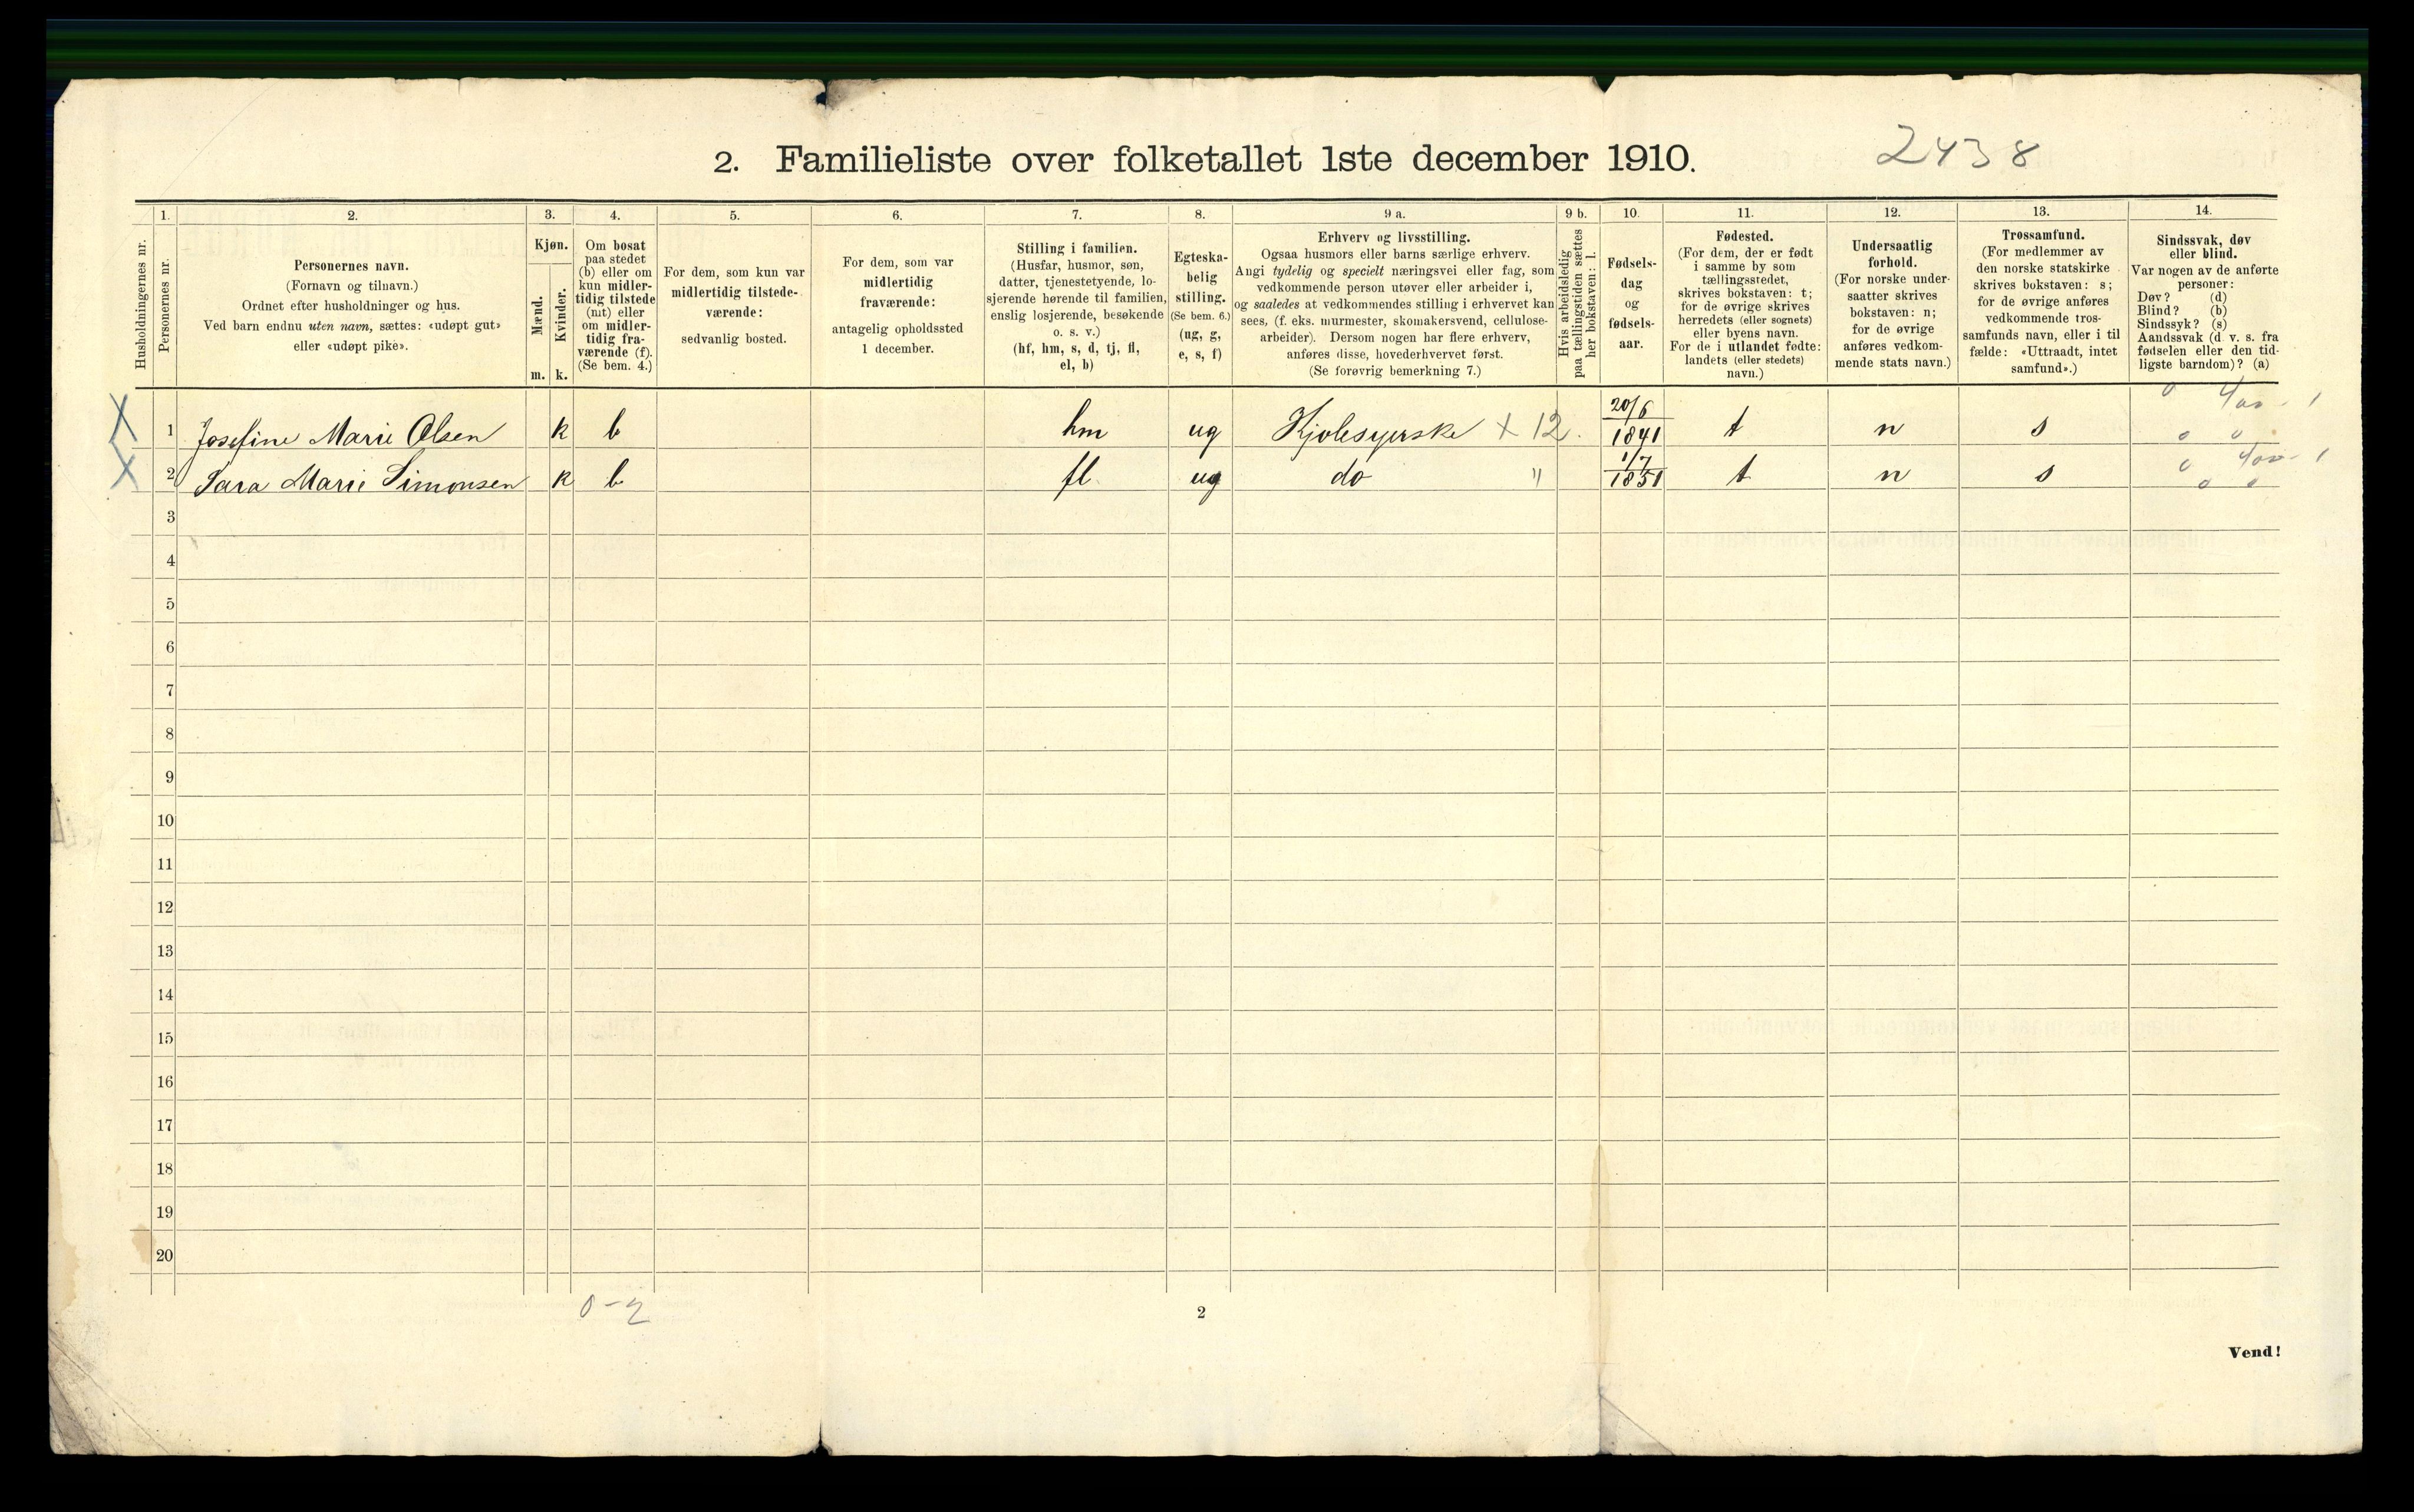 2. Familieliste over folketallet 1ste december 1910. 2438
1. 2. 3. 4. 5. 6. 7. 8. 9 a. 9 b. 10. 11. 12. 13. 14.
Husholdningernes nr.
Personernes nr.
Personernes navn.
(Fornavn og tilnavn.)
Ordnet efter husholdninger og hus.
Ved barn endnu uten navn, sættes: «udøpt gut»
eller «udøpt pike».
Kjøn.
Mænd.
Kvinder.
m. k.
Om bosat
paa stedet
(b) eller om
kun midler-
tidig tilstede
(mt) eller
om midler-
tidig fra-
værende (f).
(Se bem. 4.)
For dem, som kun var
midlertidig tilstede-
værende:
sedvanlig bosted.
For dem, som var
midlertidig
fraværende:
antagelig opholdssted
1 december.
Stilling i familien.
(Husfar, husmor, søn,
datter, tjenestetyende, lo-
sjerende hørende til familien,
enslig losjerende, besøkende
o. s. v.)
(hf, hm, s, d, tj, fl,
el, b)
Egteska-
belig
stilling.
(Se bem. 6.)
(ug, g,
e, s, f)
Erhverv og livsstilling.
Ogsaa husmors eller barns særlige erhverv.
Angi tydelig og specielt næringsvei eller fag, som
vedkommende person utøver eller arbeider i,
og saaledes at vedkommendes stilling i erhvervet kan
sees, (f. eks. murmester, skomakersvend, cellulose-
arbeider). Dersom nogen har flere erhverv,
anføres disse, hovederhvervet først.
(Se forøvrig bemerkning 7.)
Hvis arbeidsledig
paa tællingstiden sættes
her bokstaven: l.
Fødsels-
dag
og
fødsels-
aar.
Fødested.
(For dem, der er født
i samme by som
tællingsstedet,
skrives bokstaven: t;
for de øvrige skrives
herredets (eller sognets)
eller byens navn.
For de i utlandet fødte:
landets (eller stedets)
navn.)
Undersaatlig
forhold.
(For norske under-
saatter skrives
bokstaven: n;
for de øvrige
anføres vedkom-
mende stats navn.)
Trossamfund.
(For medlemmer av
den norske statskirke
skrives bokstaven: s;
for de øvrige anføres
vedkommende tros-
samfunds navn, eller i til
fælde: «Uttraadt, intet
samfund».)
Sindssvak, døv
eller blind.
Var nogen av de anførte
personer:
Døv? (d)
Blind? (b)
Sindssyk? (s)
Aandssvak (d. v. s. fra
fødselen eller den tid-
ligste barndom)? (a)
X 1 Josefine Marie Olsen k b hm ug Kjolesyerske X 12. 20/6 1841 t n s 0 400 - 1
0 0
X 2 Sara Marie Simonsen k b fl ug do " 1/7 1851 t n s 0 400 - 1
0 0
3
4
5
6
7
8
9
10
11
12
13
14
15
16
17
18
19
20
0-2
2
Vend!